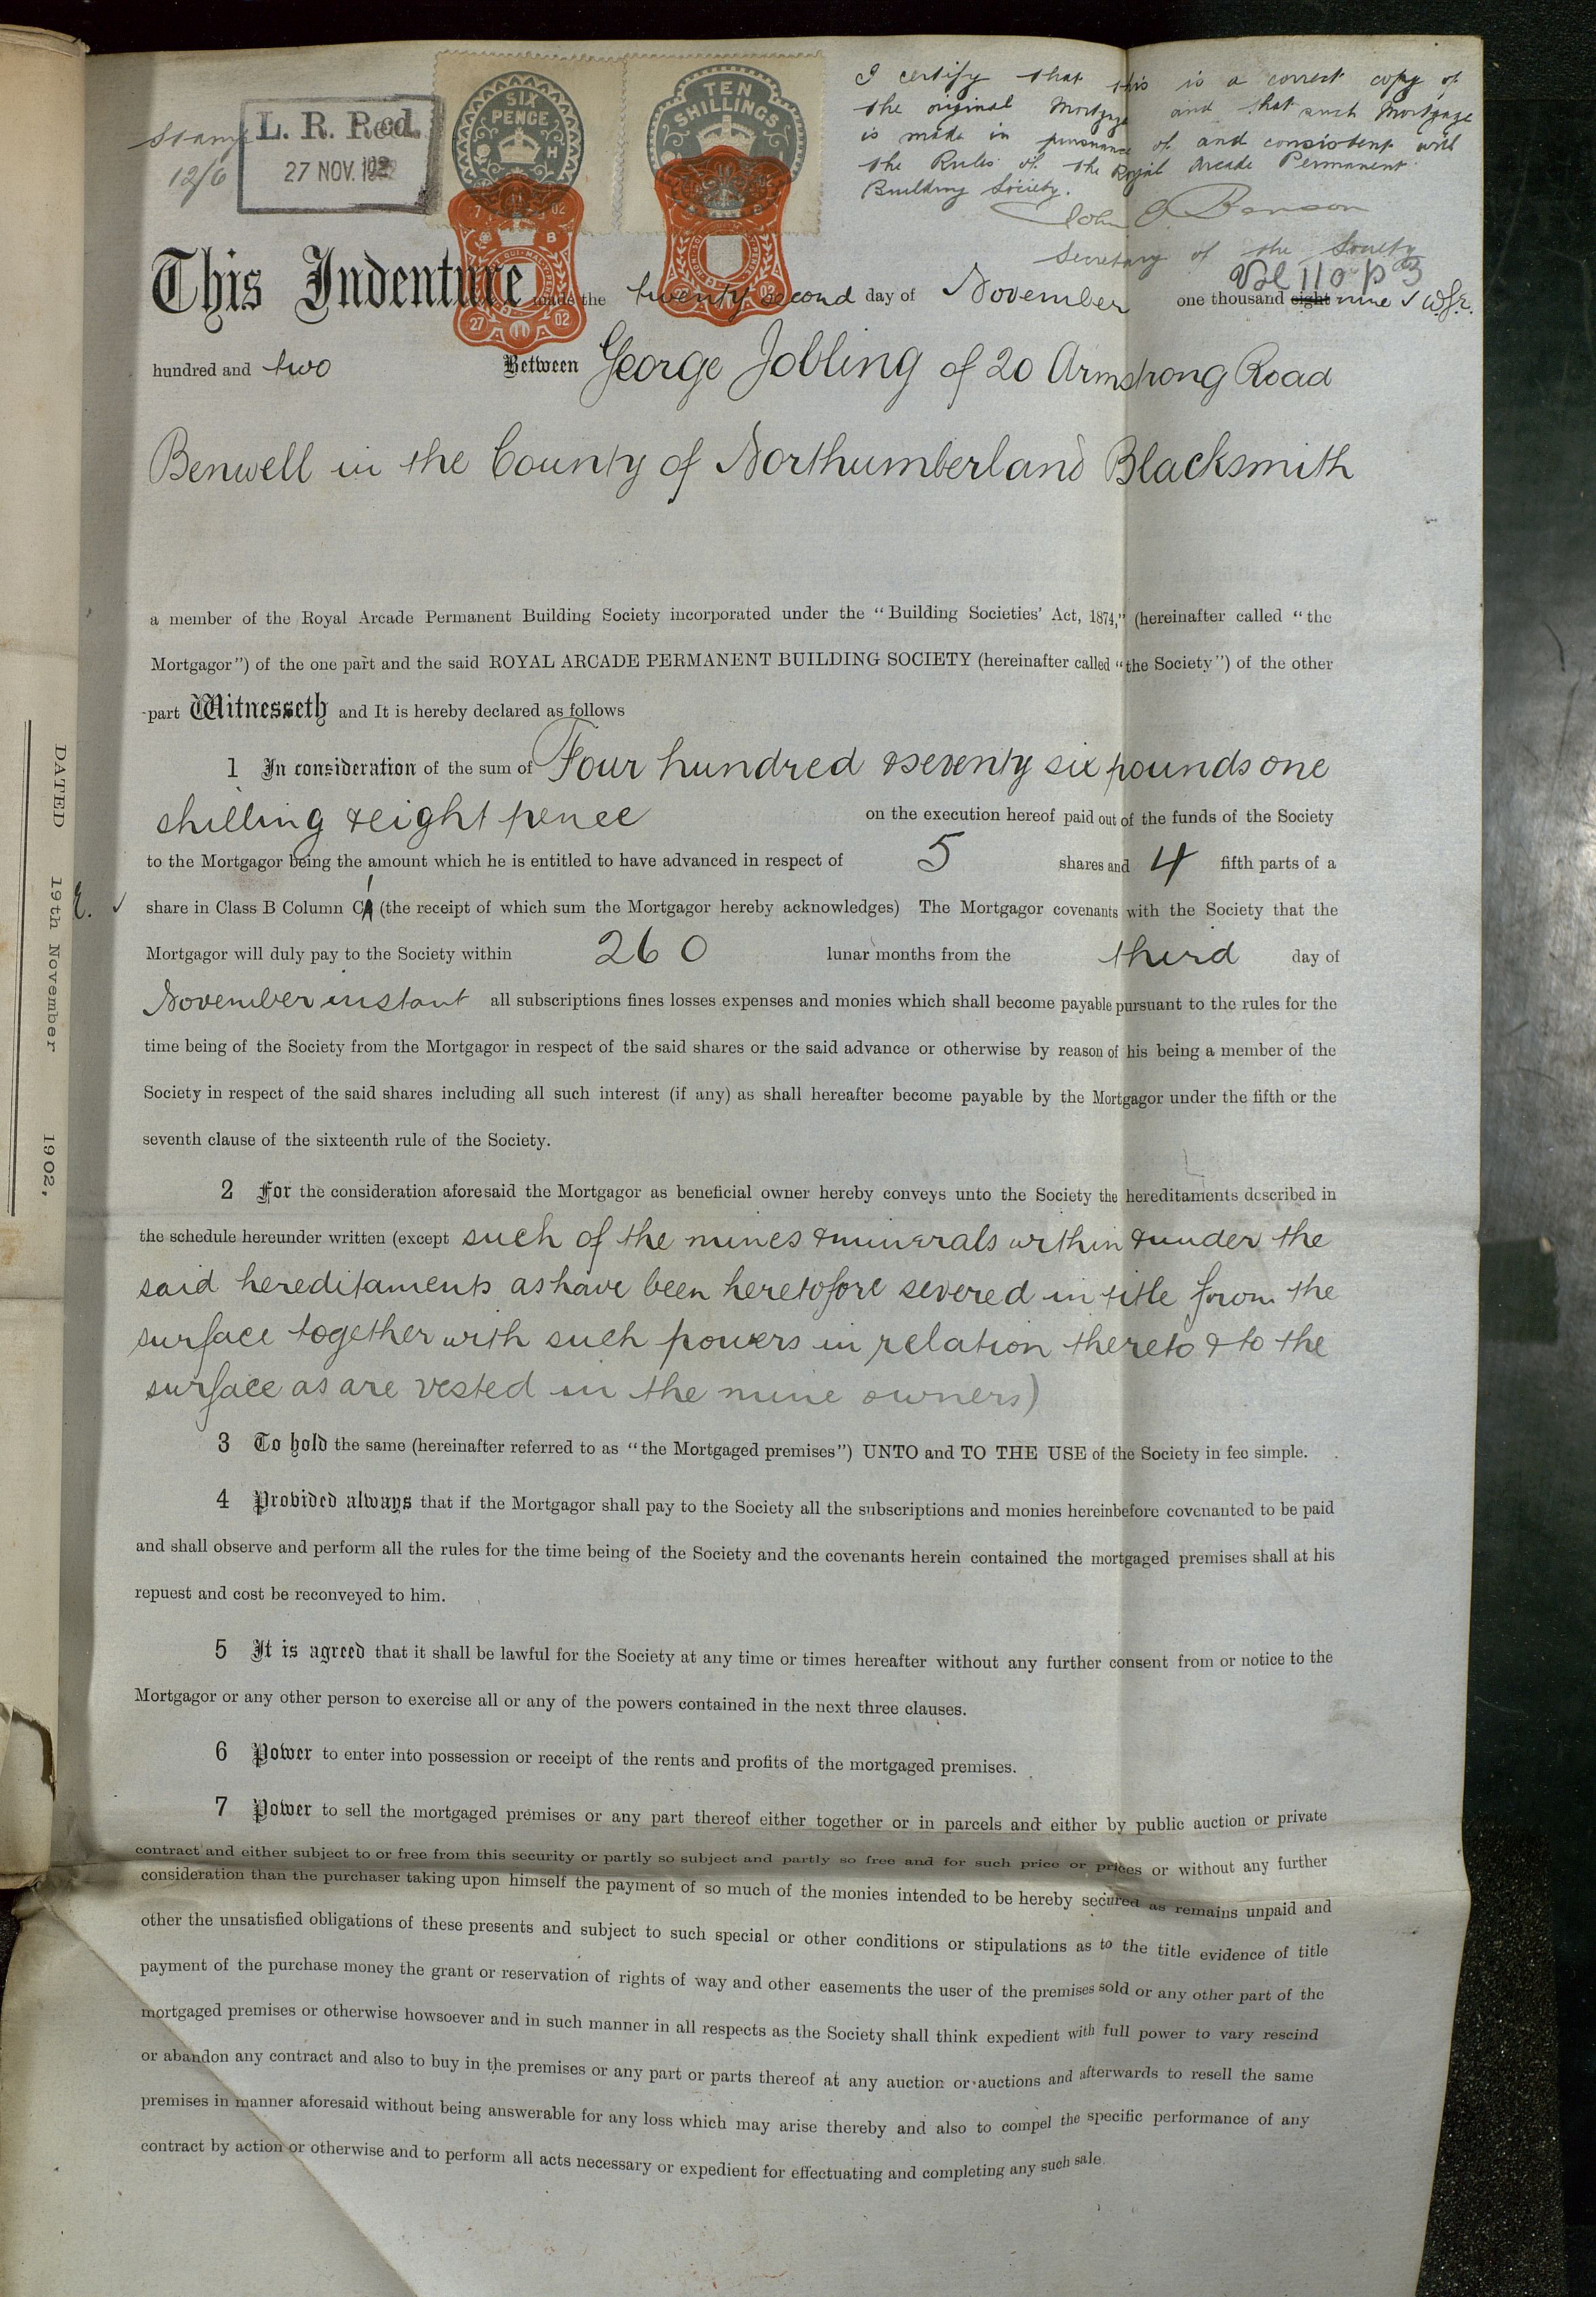 I certify that this is a correct copy of
the original Mortgage and that such Mortgage
is made in pursuance of and consistent with
the Rules of the Royal Arcade Permanent
Building Society.
John O. Benson
Secretary of the Society
Vol 110 p 3
Stamp
12/6
L. R. Recd.
27 NOV. 1902
SIX
PENCE
TEN
SHILLINGS
27 11 02
This Indenture made the twenty second day of November one thousand eight nine
hundred and two Between George Jobling of 20 Armstrong Road
Benwell in the County of Northumberland Blacksmith
a member of the Royal Arcade Permanent Building Society incorporated under the "Building Societies' Act, 1874," (hereinafter called "the
Mortgagor") of the one part and the said ROYAL ARCADE PERMANENT BUILDING SOCIETY (hereinafter called "the Society") of the other
part Witnesseth and It is hereby declared as follows
1 In consideration of the sum of Four hundred & seventy six pounds one
shilling & eight pence on the execution hereof paid out of the funds of the Society
to the Mortgagor being the amount which he is entitled to have advanced in respect of 5 shares and 4 fifth parts of a
share in Class B Column C (the receipt of which sum the Mortgagor hereby acknowledges) The Mortgagor covenants with the Society that the
Mortgagor will duly pay to the Society within 260 lunar months from the third day of
November instant all subscriptions fines losses expenses and monies which shall become payable pursuant to the rules for the
time being of the Society from the Mortgagor in respect of the said shares or the said advance or otherwise by reason of his being a member of the
Society in respect of the said shares including all such interest (if any) as shall hereafter become payable by the Mortgagor under the fifth or the
seventh clause of the sixteenth rule of the Society.
2 For the consideration aforesaid the Mortgagor as beneficial owner hereby conveys unto the Society the hereditaments described in
the schedule hereunder written (except such of the mines & minerals within & under the
said hereditaments as have been heretofore severed in title from the
surface together with such powers in relation thereto & to the
surface as are vested in the mine owners)
3 To hold the same (hereinafter referred to as "the Mortgaged premises") UNTO and TO THE USE of the Society in fee simple.
4 Provided always that if the Mortgagor shall pay to the Society all the subscriptions and monies hereinbefore covenanted to be paid
and shall observe and perform all the rules for the time being of the Society and the covenants herein contained the mortgaged premises shall at his
repuest and cost be reconveyed to him.
5 It is agreed that it shall be lawful for the Society at any time or times hereafter without any further consent from or notice to the
Mortgagor or any other person to exercise all or any of the powers contained in the next three clauses.
6 Power to enter into possession or receipt of the rents and profits of the mortgaged premises.
7 Power to sell the mortgaged premises or any part thereof either together or in parcels and either by public auction or private
contract and either subject to or free from this security or partly so subject and partly so free and for such price or prices or without any further
consideration than the purchaser taking upon himself the payment of so much of the monies intended to be hereby secured as remains unpaid and
other the unsatisfied obligations of these presents and subject to such special or other conditions or stipulations as to the title evidence of title
payment of the purchase money the grant or reservation of rights of way and other easements the user of the premises sold or any other part of the
mortgaged premises or otherwise howsoever and in such manner in all respects as the Society shall think expedient with full power to vary rescind
or abandon any contract and also to buy in the premises or any part or parts thereof at any auction or auctions and afterwards to resell the same
premises in manner aforesaid without being answerable for any loss which may arise thereby and also to compel the specific performance of any
contract by action or otherwise and to perform all acts necessary or expedient for effectuating and completing any such sale.
DATED 19th November 1902,